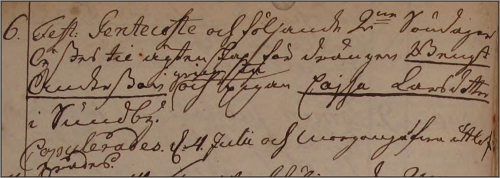 6. Fest: Pentecoste och följande 2ne Söndagar
lystes til ägtenskap för drängen Bengt
Andersson och pigan Cajsa Larsdotter
i Sundby.
Copulerades d. 4 Julii och morgongåfvan utlof
vades.